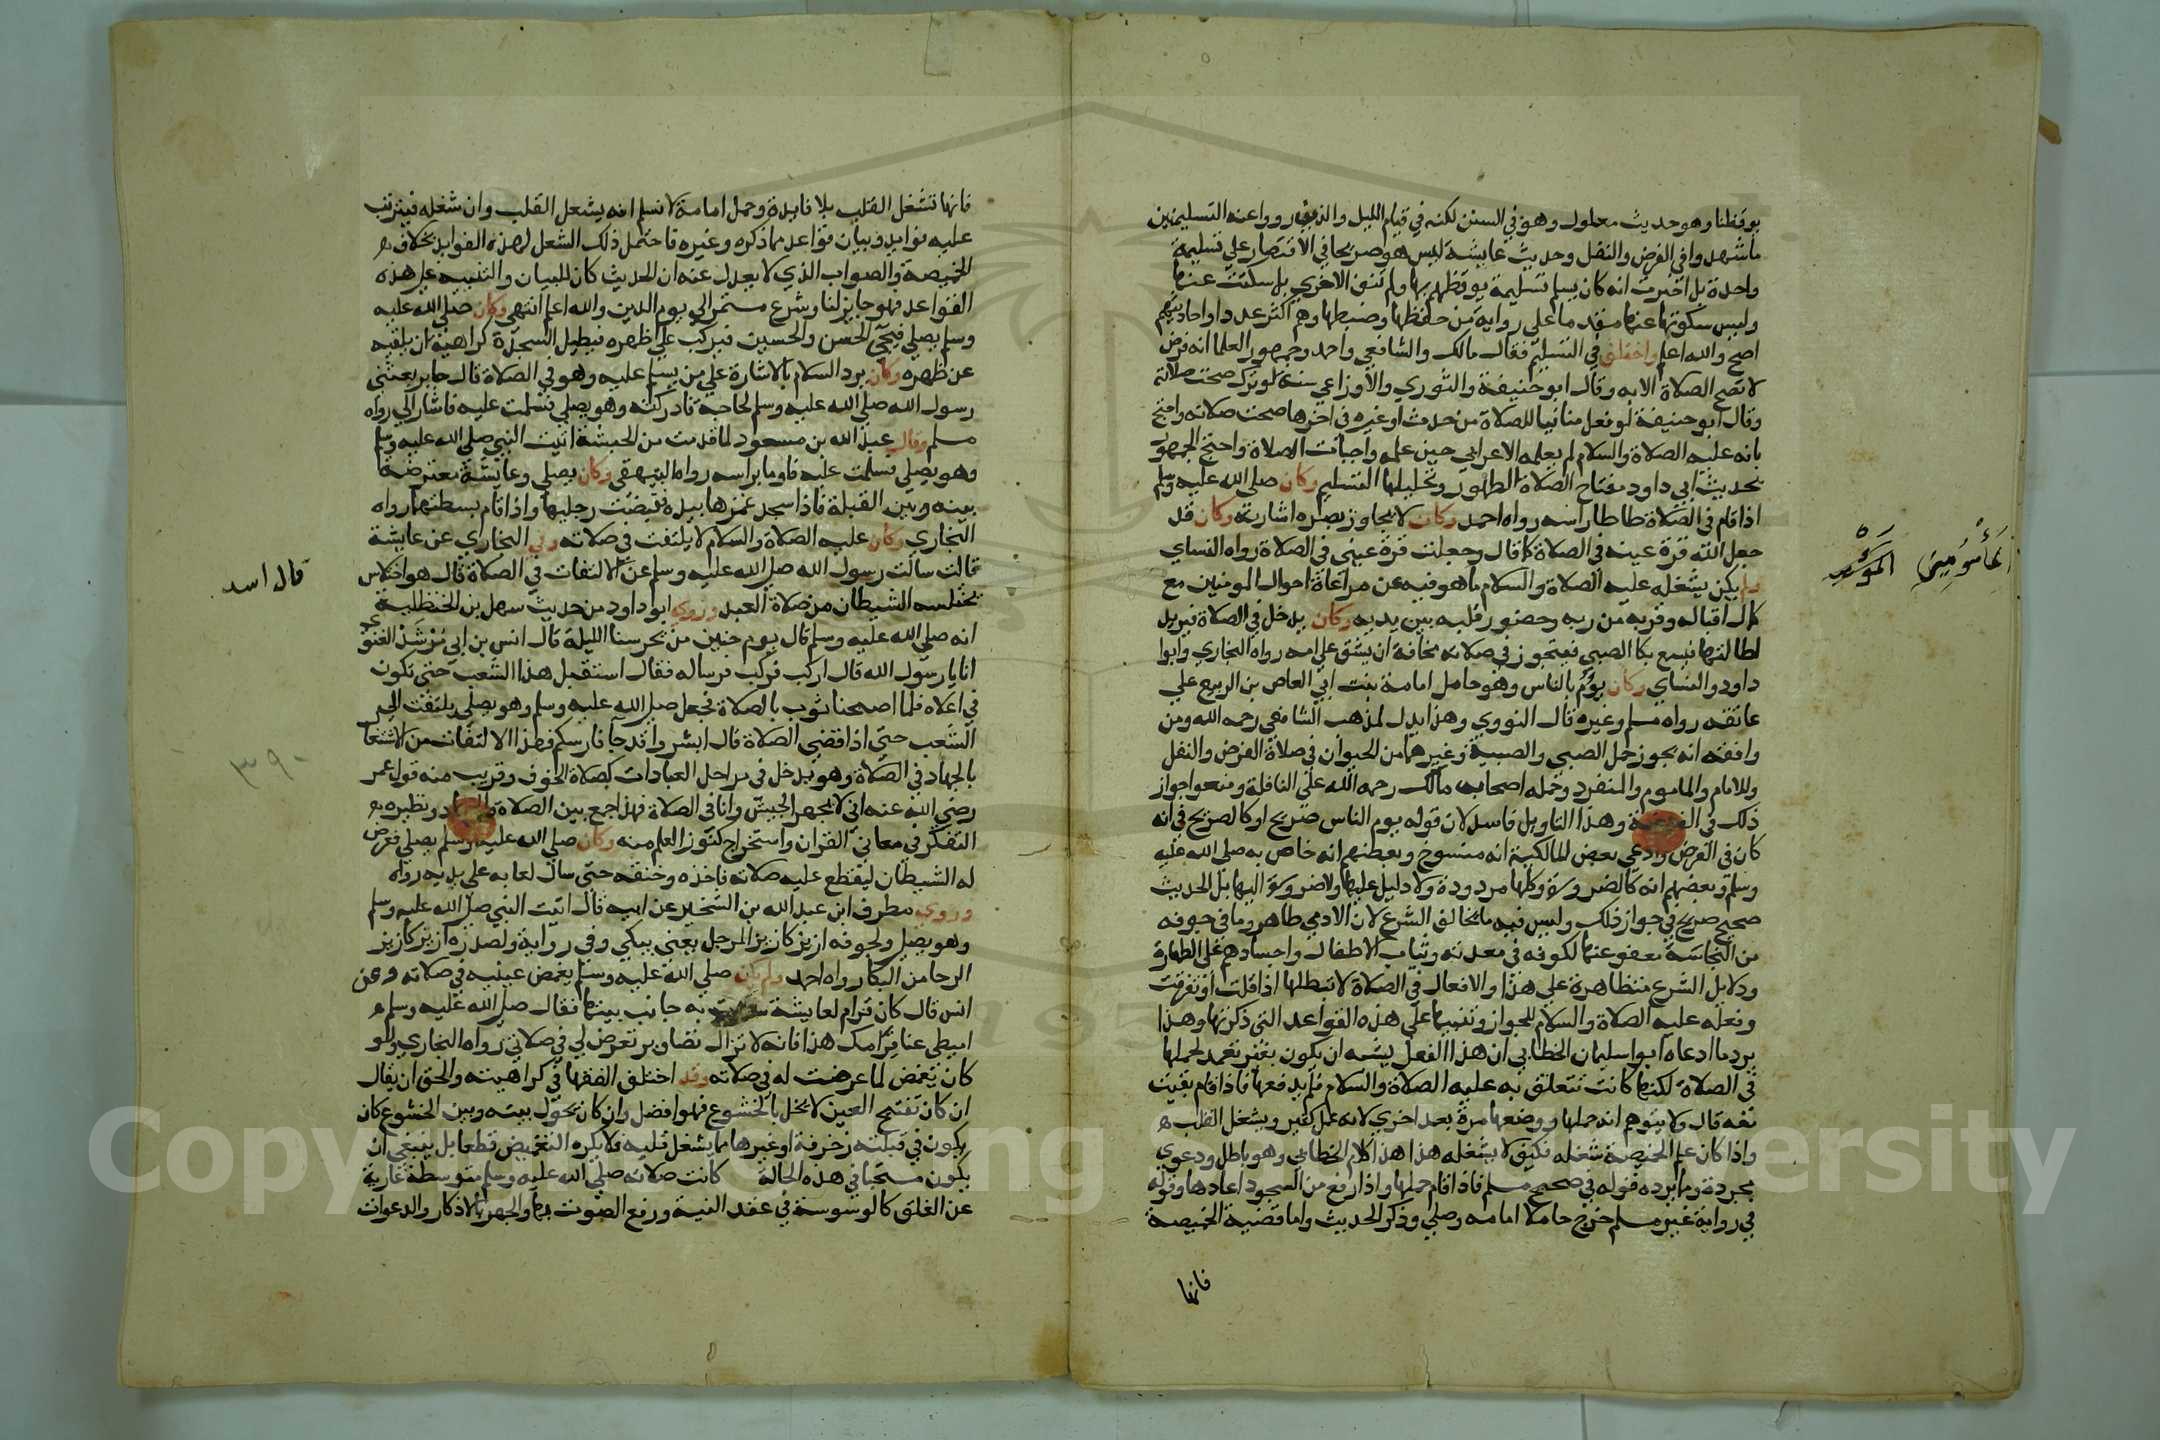 يوقظنا وهو حديث معلول وهو في السنن لكنه في قيام الليل والذين رووا عنه التسليمتين
ما شهدوا في الفرض والنفل وحديث عايشة ليس هو صريحا في الاقتصار على تسليمة
واحدة بل اخبرت انه كان يسلم تسليمة يوقظهم بها ولم تنف الاخرى بل سكتت عنها
وليس سكوتها عنها مقدما على رواية من حفظها وضبطها وهم اكثر عددا واحاديثهم
اصح والله اعلم واختلف في التسليم فقال مالك والشافعي واحمد وجمهور العلما انه فرض
لا تصح الصلاة الا به وقال ابو حنيفة والثوري والاوزاعي سنة لو ترك صحت صلاته
وقال ابو حنيفة لو فعل منافيا للصلاة من حدث او غيره في اخرها صحت صلاته واحتج
بانه عليه الصلاة والسلام لم يعلمه الاعرابي حين علمه واجبات الصلاة واحتج الجمهور
بحديث ابي داود مفتاح الصلاة الطهور وتحليلها التسليم وكان صلى الله عليه وسلم
اذا قام في الصلاة طاطا راسه رواه احمد وكان لا يجاوز بصره اشارته وكان قد
جعل الله قرة عينه في الصلاة كما قال وجعلت قرة عيني في الصلاة رواه النساي
ولم يكن يشغله عليه الصلاة والسلام ما هو فيه عن مراعاة احوال المومنين مع
كمال اقباله وقربه من ربه وحضور قلبه بين يديه وكان يدخل في الصلاة فيريد
اطالتها فيسمع بكا الصبي فيتجوز في صلاته مخافة ان يشق على امه رواه البخاري وابوا
داود والنساي وكان يؤم بالناس وهو حامل امامة بنت ابي العاص بن الربيع على
عاتقه رواه مسلم وغيره قال النووي وهذا يدل لمذهب الشافعي رحمه الله ومن
وافقه انه يجوز حمل الصبي والصبية وغيرهما من الحيوان في صلاة الفرض والنفل
وللامام والماموم والمنفرد وحمله اصحاب مالك رحمه الله على النافلة ومنعوا جواز
ذلك في الفريضة وهذا التاويل فاسد لان قوله يوم الناس صريح او كالصريح في انه
كان في الفرض وادعى بعض المالكية انه منسوخ وبعضهم انه خاص به صلى الله عليه
وسلم وبعضهم انه كالضرورة وكلها مردودة ولا دليل عليها ولا ضرورة اليها بل الحديث
صحيح صريح في جواز ذلك وليس فيه ما يخالف الشرع لان الادمي طاهر وما في جوفه
من النجاسة معفو عنها لكونه في معدنه وثياب الاطفال واجسادهم على الطهارة
ودلايل الشرع متظاهرة على هذا والافعال في الصلاة لا تبطلها اذا قلت او تفرقت
وفعله عليه الصلاة والسلام للجواز وتنبيها على هذه القواعد التي ذكرتها وهذا
يرد ما ادعاه ابوا سليمان الخطابي ان هذا الفعل يشبه ان يكون بغير تعمد لحملها
في الصلاة لكنها كانت تتعلق به عليه الصلاة والسلام فلم يدفعها فاذا قام بقيت
معه قال ولا يتوهم انه حملها ووضعها مرة بعد اخرى لانه عمل كثير ويشغل القلب
واذا كان علم الخميصة شغله فكيف لا يشغله هذا هذا كلام الخطابي وهو باطل ودعوى
مجردة ومما يرده قوله في صحيح مسلم فاذا قام حملها واذا رفع من السجود اعادها وقوله
في رواية غير مسلم خرج حاملا امامه وصلى وذكر الحديث واما قضية الخميصة
فانها
المأمومين المؤمنين
فانها تشغل القلب بلا فايدة وحمل امامة لا نسلم انه يشغل القلب وان شغله فيترتب
عليه فوايد وبيان قواعد مما ذكره وغيره فاحتمل ذلك الشغل لهذه الفوايد بخلاف
الخميصة والصواب الذي لا يعدل عنه ان الحديث كان للبيان والتنبيه على هذه
القواعد فهو جايز لنا وشرع مستمر الى يوم الدين والله اعلم انتهى وكان صلى الله عليه
وسلم يصلي فيجي الحسن والحسين فيركب على ظهره فيطيل السجدة كراهية ان يلقيه
عن ظهره وكان يرد السلام بالاشارة على من يسلم عليه وهو في الصلاة قال جابر بعثني
رسول الله صلى الله عليه وسلم لحاجة فادركته وهو يصلي فسلمت عليه فاشار الي رواه
مسلم وقال عبد الله بن مسعود لما قدمت من الحبشة اتيت النبي صلى الله عليه وسلم
وهو يصلي فسلمت عليه فاوما براسه رواه البيهقي وكان يصلي وعايشة معترضة
بينه وبين القبلة فاذا سجد غمزها بيده فقبضت رجليها واذا قام بسطتهما رواه
البخاري وكان عليه الصلاة والسلام لا يلتفت في صلاته وفي البخاري عن عايشة
قالت سالت رسول الله صلى الله عليه وسلم عن الالتفات في الصلاة قال هو اختلاس
يختلسه الشيطان من صلاة العبد وروى ابو داود من حديث سهل بن الحنظلية
انه صلى الله عليه وسلم قال يوم حنين من يحرسنا الليلة قال انس بن ابي مرشد الغنوي
انا يا رسول الله قال اركب فركب فرسا له فقال استقبل هذا الشعب حتى تكون
في اعلاه فلما اصبحنا ثوب بالصلاة فجعل صلى الله عليه وسلم وهو يصلي يلتفت الى
الشعب حتى اذا قضى الصلاة قال ابشروا قد جا فارسكم فهذا الالتفات من الاشتغال
بالجهاد في الصلاة وهو يدخل في مراحل العبادات كصلاة الخوف وقريب منه قول عمر
رضي الله عنه اني لا جهز الجيش وانا في الصلاة فهذا جمع بين الصلاة والجهاد ونظيره
التفكر في معاني القران واستخراج كنوز العلم منه وكان صلى الله عليه وسلم يصلي فعرض
له الشيطان ليقطع عليه صلاته فاخذه وخنقه حتى سال لعابه على يديه رواه
وروى مطرف ابن عبد الله بن الشخير عن ابيه قال اتيت النبي صلى الله عليه وسلم
وهو يصلي ولجوفه ازيز كازيز المرجل يعني يبكي وفي رواية ولصدره ازيز كازيز
الرحا من البكا رواه احمد ولم يكن صلى الله عليه وسلم يغمض عينيه في صلاته وعن
انس قال كان قرام لعايشة سترت به جانب بيتها فقال صلى الله عليه وسلم
اميطي عنا قرامك هذا فانه لا تزال تصاويره تعرض لي في صلاتي رواه البخاري ولو
كان يغمض لما عرضت له في صلاته وقد اختلف الفقها في كراهيته والحق ان يقال
ان كان تفتيح العين لا يخل بالخشوع فهو افضل وان كان يحول بينه وبين الخشوع كان
يكون في قبلته زخرفة او غيرها مما يشغل قلبه فلا يكره التغميض قطعا بل ينبغي ان
يكون مستحبا في هذه الحالة كانت صلاته صلى الله عليه وسلم متوسطة عارية
عن الغلق كالوسوسة في عقد النية ورفع الصوت بها والجهر بالاذكار والدعوات
قال اسد
٣٩٠
Copyright © King Saud University